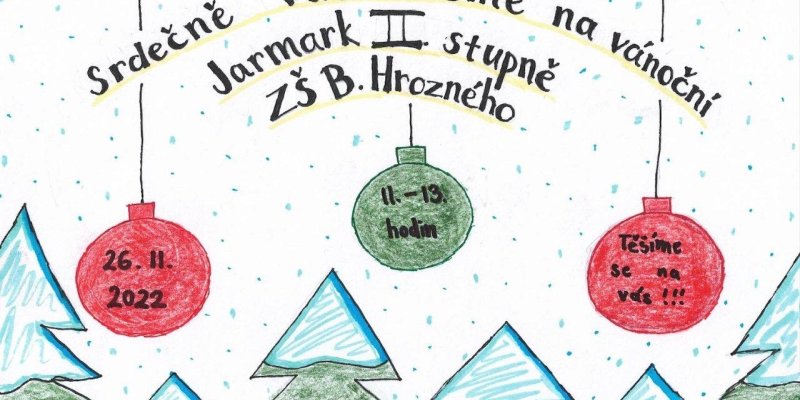 Srdečně na vánoční
Jarmark II. stupně
ZŠ B. Hrozného
26. 11.
2022
11. - 13.
hodin
Těšíme
se na
vás !!!